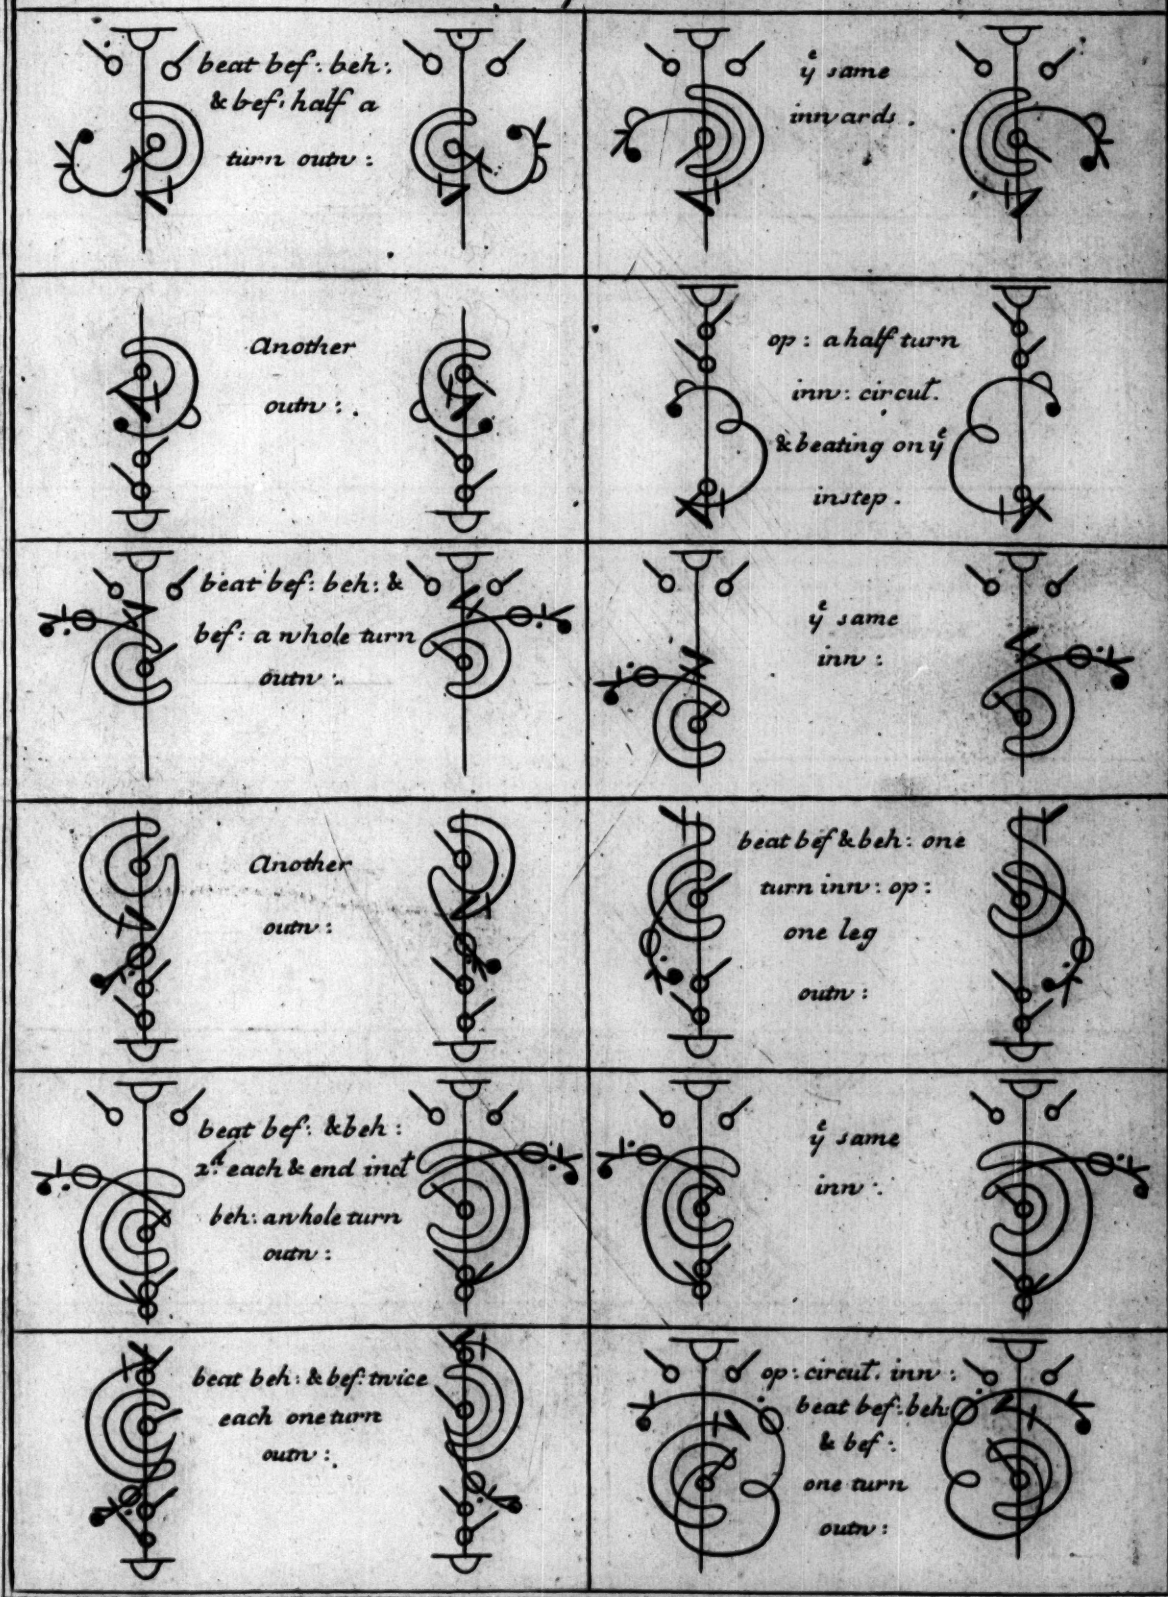 beat bef: beh:
& bef: half a
turn outw:
yͤ same
inwards.
Another
outw:.
op: a half turn
inw: circut.
& beating on yͤ
instep.
beat bef: beh: &
bef: a whole turn
outw:.
yͤ same
inw:
Another
outw:
beat bef & beh: one
turn inw: op:
one leg
outw:
beat bef: & beh:
2.ᵈ each & end incɫ
beh: a whole turn
outw:
yͤ same
inw:.
beat beh: & bef: twice
each one turn
outw:.
op: circut. inw:
beat bef: beh:
& bef:
one turn
outw: